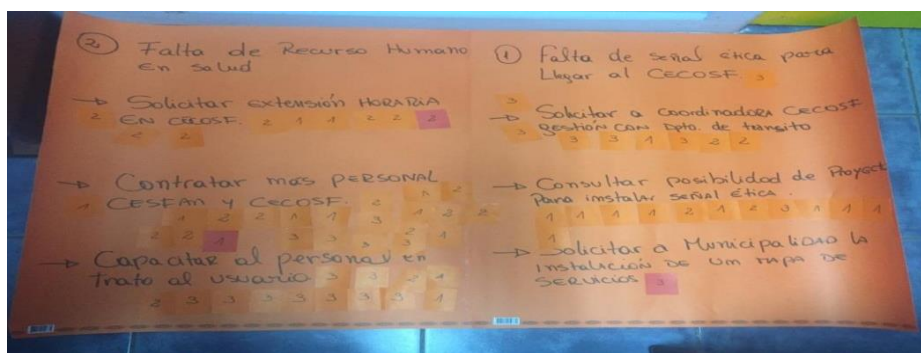 ② Falta de Recurso Humano
En Salud
→ Solicitar extensión HORARIA
EN CECOSF. 2 1 1 2 2 2
2 2 2
→ Contratar más PERSONAL
CESFAM y CECOSF.
→ Capacitar al personal en
Trato al usuario 3 3 2 1
2 3 3 3 3 3 3 3 1
① Falta de señal ética para
Llegar al CECOSF 3
3
→ Solicitar a coordinadora CECOSF
3 gestión con Dpto. de transito
3 3 1 3 2 2
→ Consultar posibilidad de Proyect
Para instalar señal Ética.
1 1 1 1 2 1 2 3 1 1 1
1
→ Solicitar a Municipalidad la
instalación de um mapa de
SERVICIOS 3